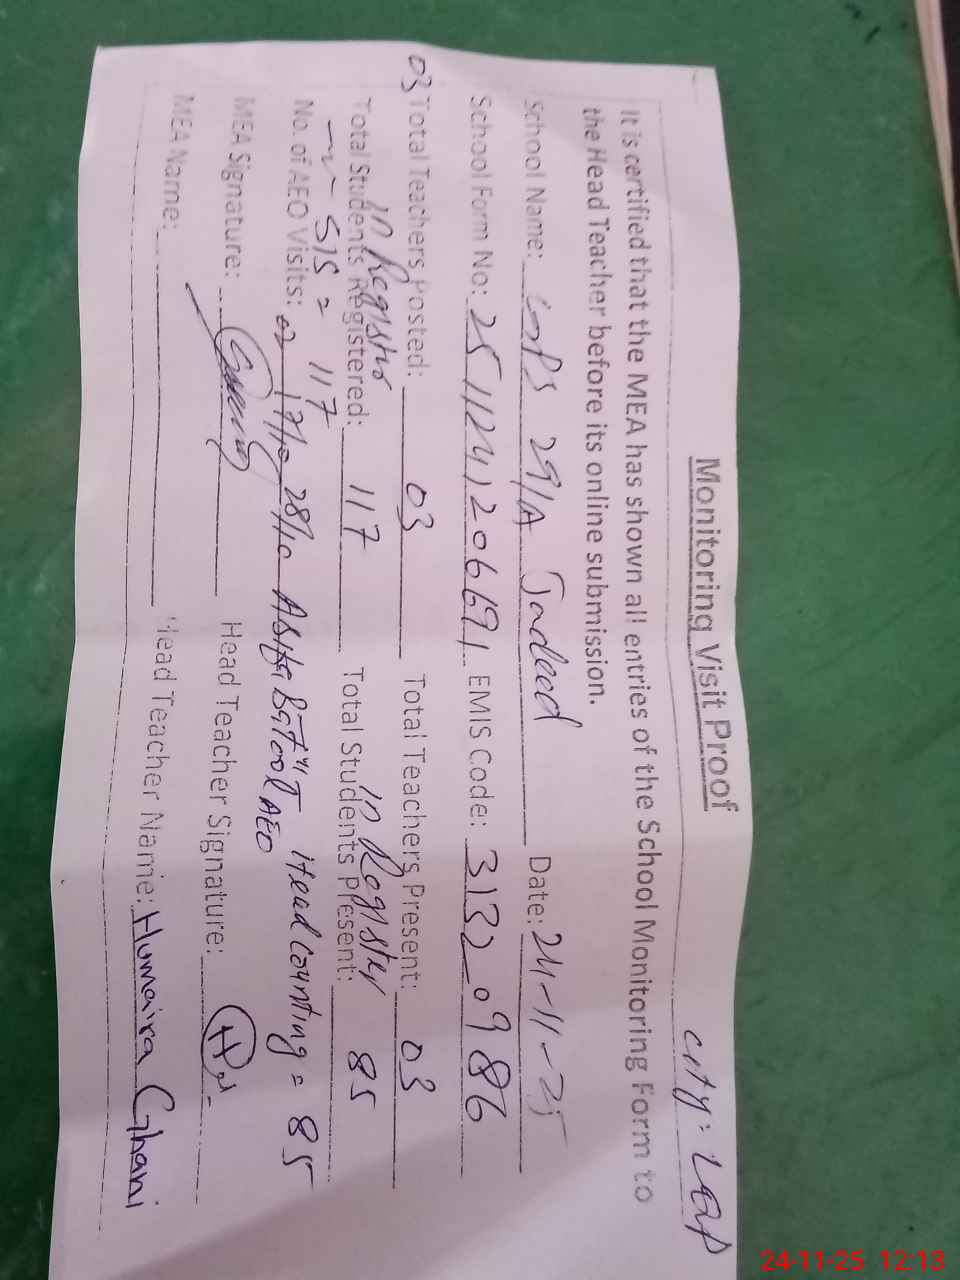 Monitoring Visit Proof
City: LEP
It is certified that the MEA has shown all entries of the School Monitoring Form to
the Head Teacher before its online submission.
School Name: GPS 291A Jadeed Date: 24-11-25
School Form No: 2511241206691 EMIS Code: 31320986
03 Total Teachers Posted: 03 Total Teachers Present: 03
in Register in Register
Total Students Registered: 117 Total Students Present: 85
SIS = 117 Head Counting = 85
No. of AEO Visits: 02 17/10 28/10 Asifa Batool AEO
MEA Signature: Head Teacher Signature:
MEA Name: Head Teacher Name: Humaira Ghani
24-11-25 12:13